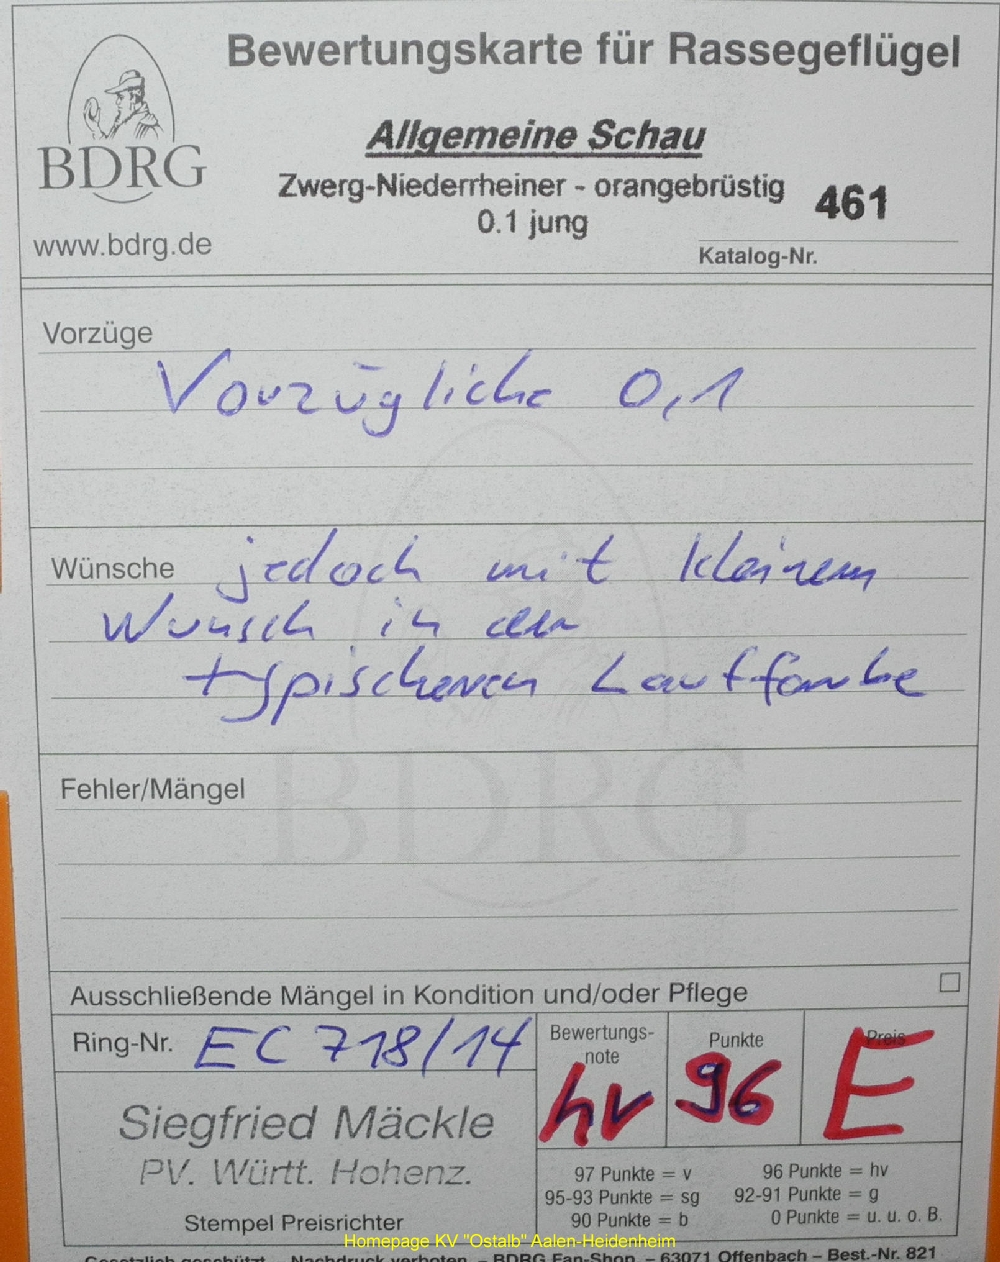 Bewertungskarte für Rassegeflügel
BDRG
www.bdrg.de
Allgemeine Schau
Zwerg-Niederrheiner - orangebrüstig
0.1 jung
461
Katalog-Nr.
Vorzüge
Vorzügliche 0,1
Wünsche jedoch mit kleinem
Wunsch in der
typischeren Lauffarbe
Fehler/Mängel
BDRG
Ausschließende Mängel in Kondition und/oder Pflege
Ring-Nr. EC 718/14
Bewertungs-
note
hv
Punkte
96
Preis
E
Siegfried Mäckle
PV. Württ. Hohenz.
Stempel Preisrichter
97 Punkte = v 96 Punkte = hv
95-93 Punkte = sg 92-91 Punkte = g
90 Punkte = b 0 Punkte = u. u. o. B.
Homepage KV "Ostalb" Aalen-Heidenheim
Gesetzlich geschützt Nachdruck verboten – BDRG Fan-Shop – 63071 Offenbach – Best.-Nr. 821